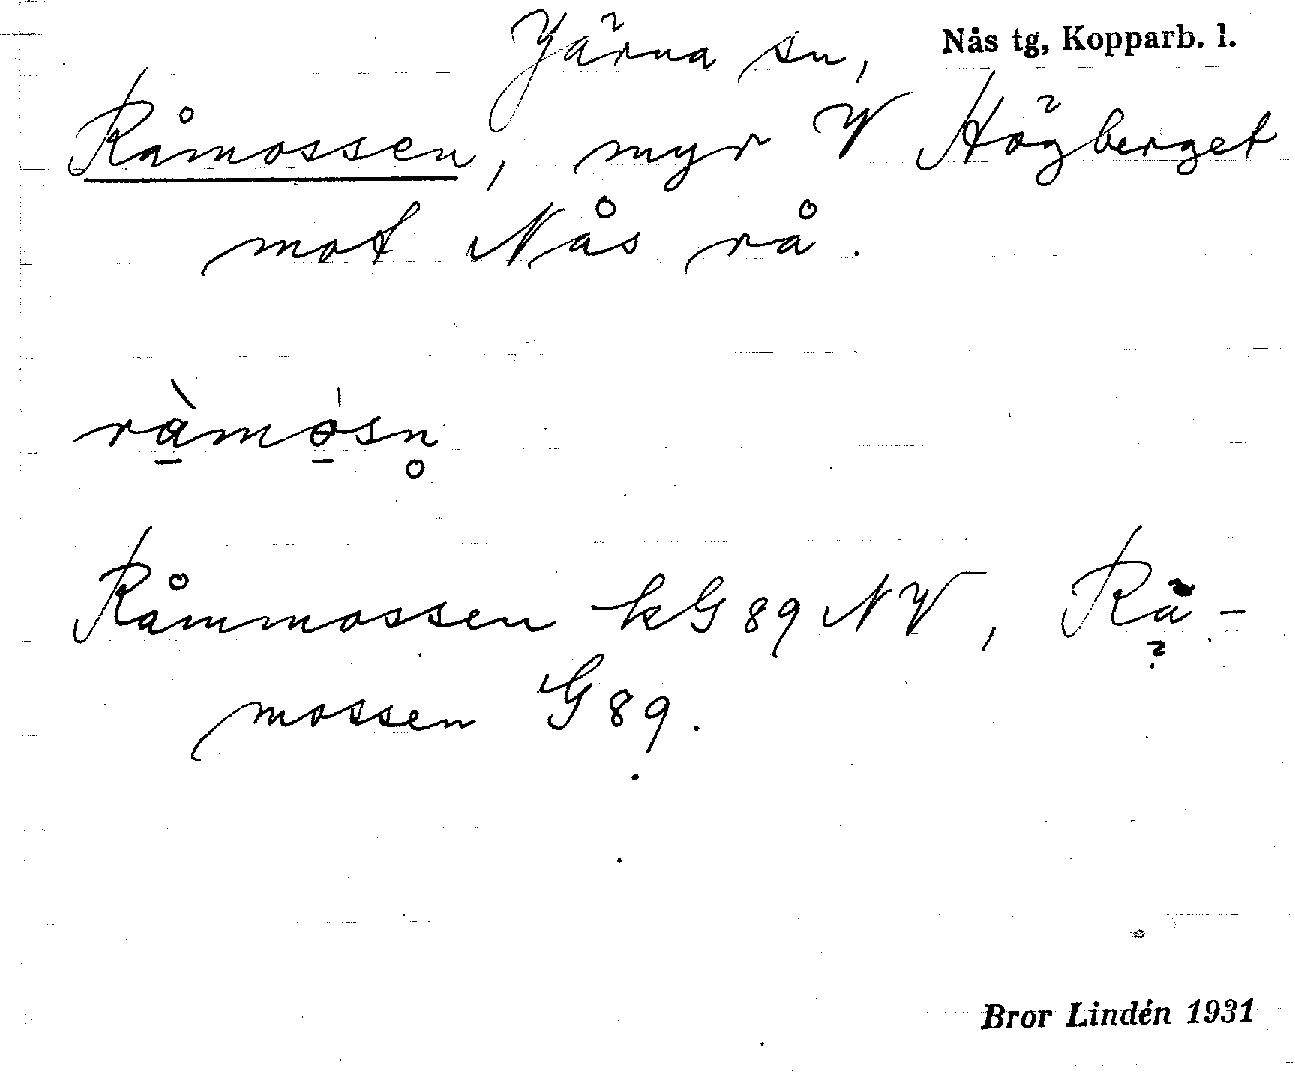 Järna sn, Nås tg, Kopparb. l.
Råmossen, myr V Högberget
mot Nås rå.
rà̱mo̱̍sn̥
Råmmossen hkG 89 NV, Rå-
mossen G 89.
Bror Lindén 1931